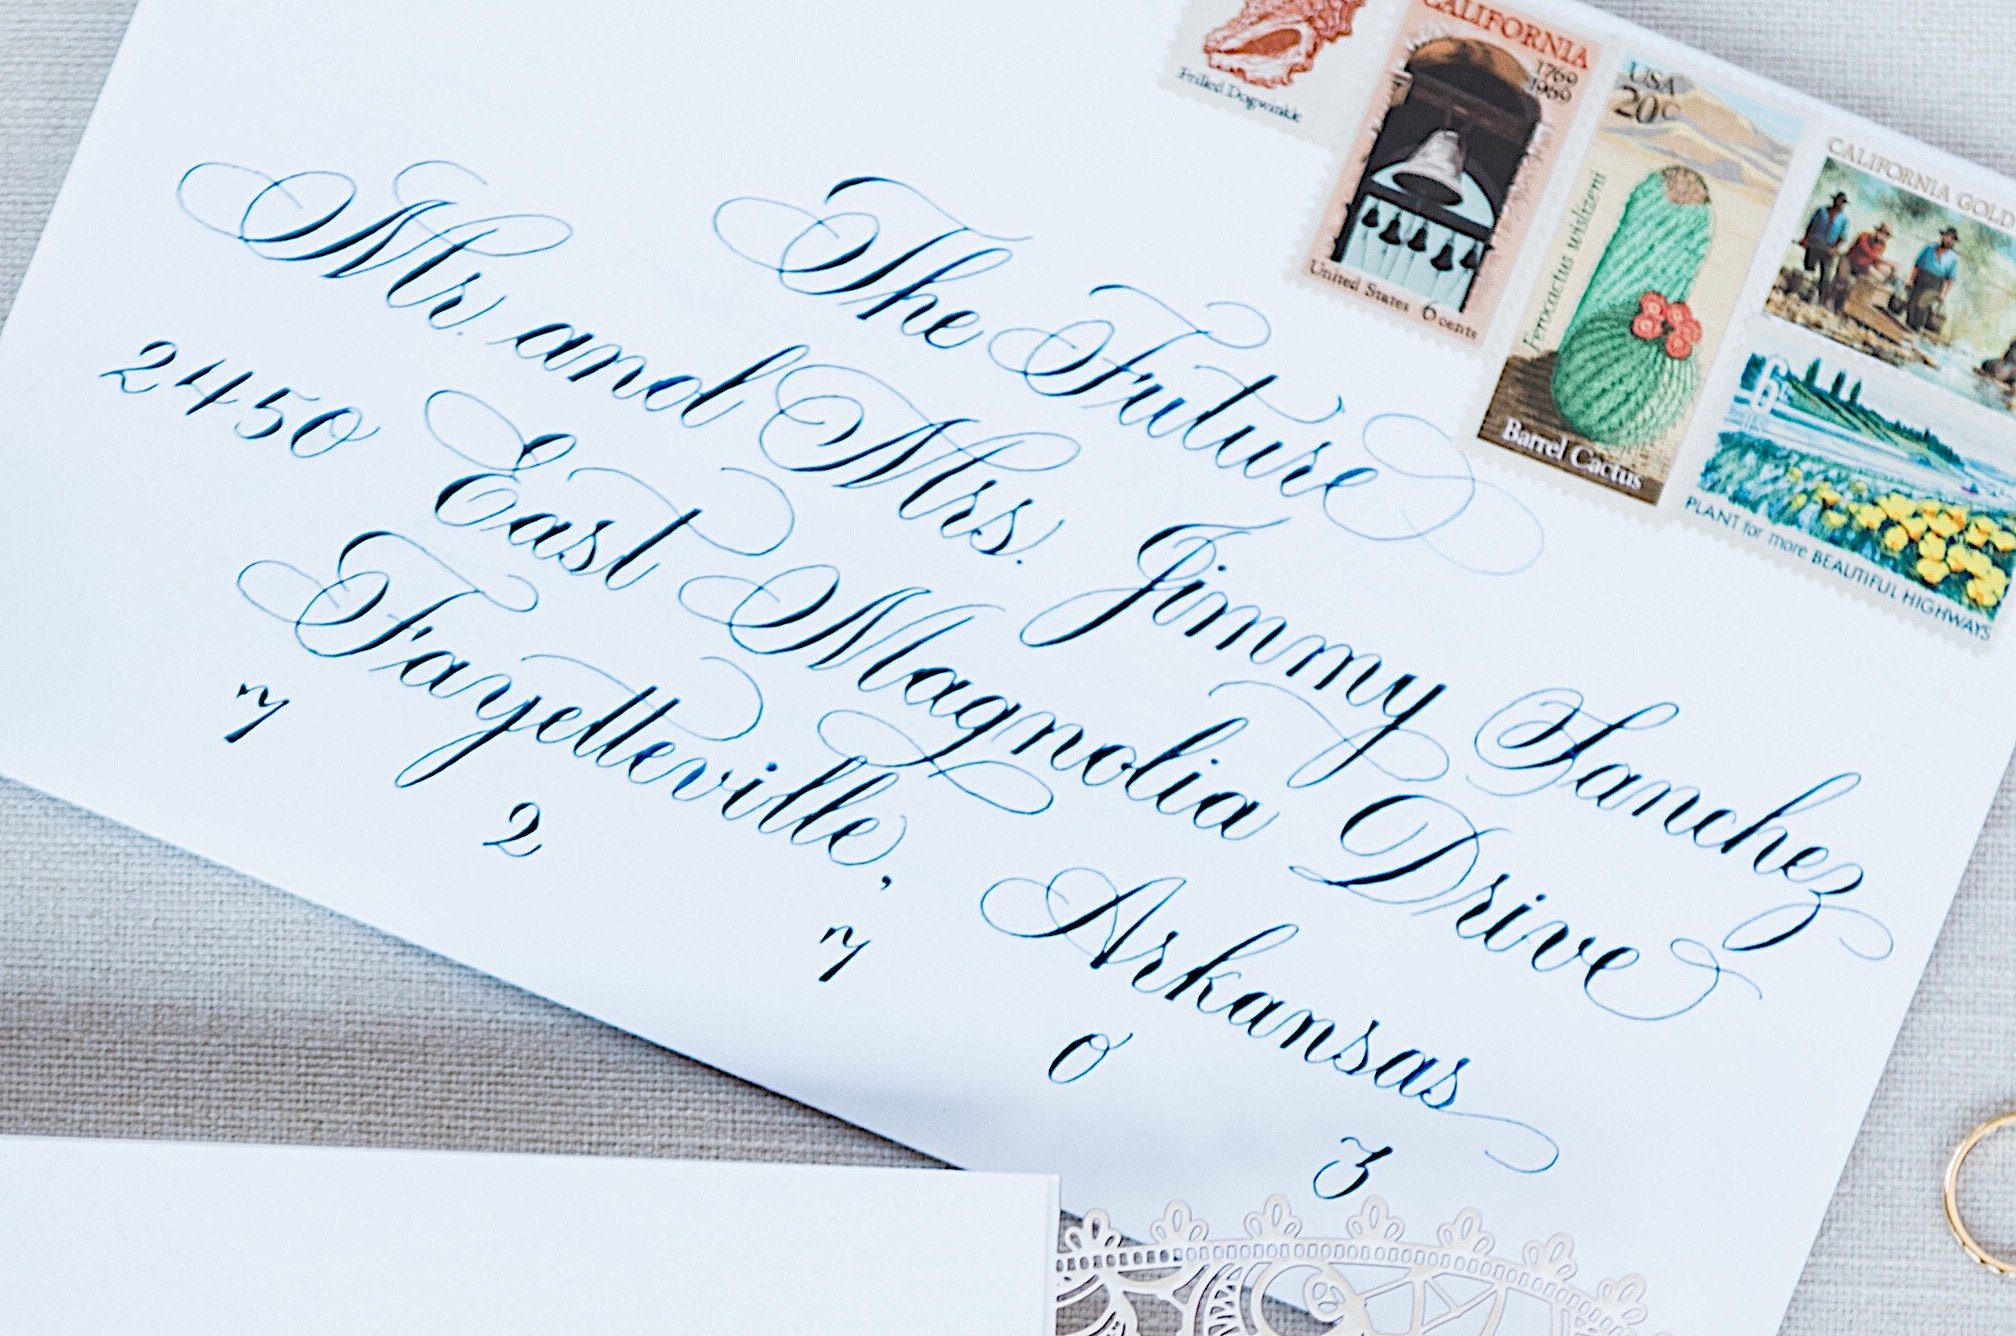 The Future
Mr. and Mrs. Jimmy Sanchez
2450 East Magnolia Drive
Fayetteville, Arkansas
7 2 7 0 3
Frilled Dogwinkle
CALIFORNIA
1769
1969
United States 6 cents
USA
20c
Ferocactus wislizeni
Barrel Cactus
CALIFORNIA GOLD
6c
PLANT for more BEAUTIFUL HIGHWAYS